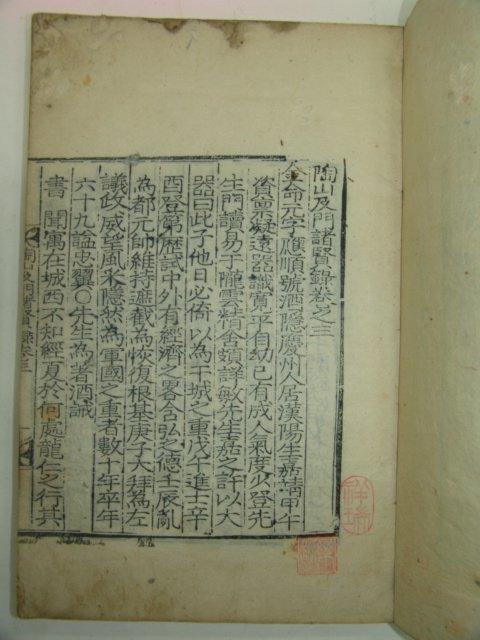 陶山及門諸賢錄卷之三
金命元字應順號酒隱慶州人居漢陽生嘉靖甲午
資稟凝遠器識寬平自幼已有成人氣度少登先
生門讀易于隴雲精舍頗詳敏先生嘉之許以大
器曰此子他日必倚以爲干城之重戊午進士辛
酉登第歷試中外有經濟之畧含弘之德壬辰亂
爲都元帥維持遮截爲恢復根基庚子大拜爲左
議政威望風采隱然爲軍國之重者數十年卒年
六十九諡忠翼○先生爲著酒誡
書 聞寓在城西不知經夏於何處龍仁之行其
陶山及門諸賢錄卷三